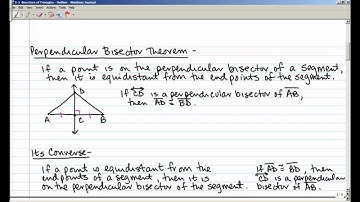 5-2 Bisectors of Triangles - Outline - Windows Journal
Perpendicular Bisector Theorem -
If a point is on the perpendicular bisector of a segment,
then it is equidistant from the end points of the segment.
D
If CD is a perpendicular bisector of AB,
then AD ≅ BD.
A C B
Its Converse -
If a point is equidistant from the
end points of a segment, then it is
on the perpendicular bisector of the segment.
If AD ≅ BD, then
CD is a perpendicular
bisector of AB.